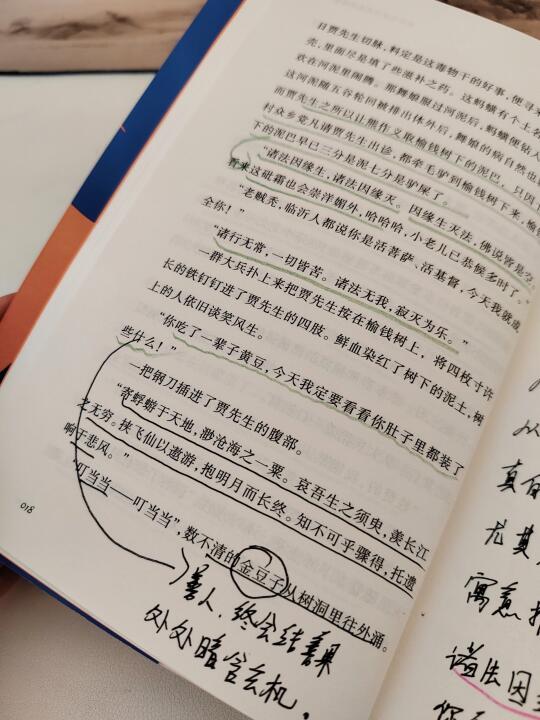 日贾先生切脉，料定是这毒物干的好事，便寻来
壳，里面尽是填了些滋补之药。那蚂蟥有个上名
欢在河泥里闹腾。那舞娘服过河泥后，蚂蟥便钻入
这河泥随五谷轮回被排出体外后，舞娘的病自然也
而贾先生之所以让熊作义取榆钱树下的泥巴，只因
村众乡党凡请贾先生出诊，都牵毛驴到榆钱树下来，榆钱
下的泥巴早已三分是泥七分是驴屎了。
“诸法因缘生，诸法因缘灭。因缘生灭法，佛说皆是空。
看来这砒霜也会崇洋媚外，哈哈哈，小老儿已恭候多时了。”
“老贼秃，临沂人都说你是活菩萨、活基督，今天我就成
全你！”
“诸行无常，一切皆苦。诸法无我，寂灭为乐。”
一群大兵扑上来把贾先生按在榆钱树上，将四枚寸许
长的铁钉钉进了贾先生的四肢。鲜血染红了树下的泥土，树
上的人依旧谈笑风生。
“你吃了一辈子黄豆，今天我定要看看你肚子里都装了
些什么！”
一把钢刀插进了贾先生的腹部。
“寄蜉蝣于天地，渺沧海之一粟。哀吾生之须臾，羡长江
之无穷。挟飞仙以遨游，抱明月而长终。知不可乎骤得，托遗
响于悲风。”
“叮当当——叮当当”，数不清的金豆子从树洞里往外涌。
018
善人，终会结善果
处处暗含玄机，
从
真
尤其
寓意
诸法因
你